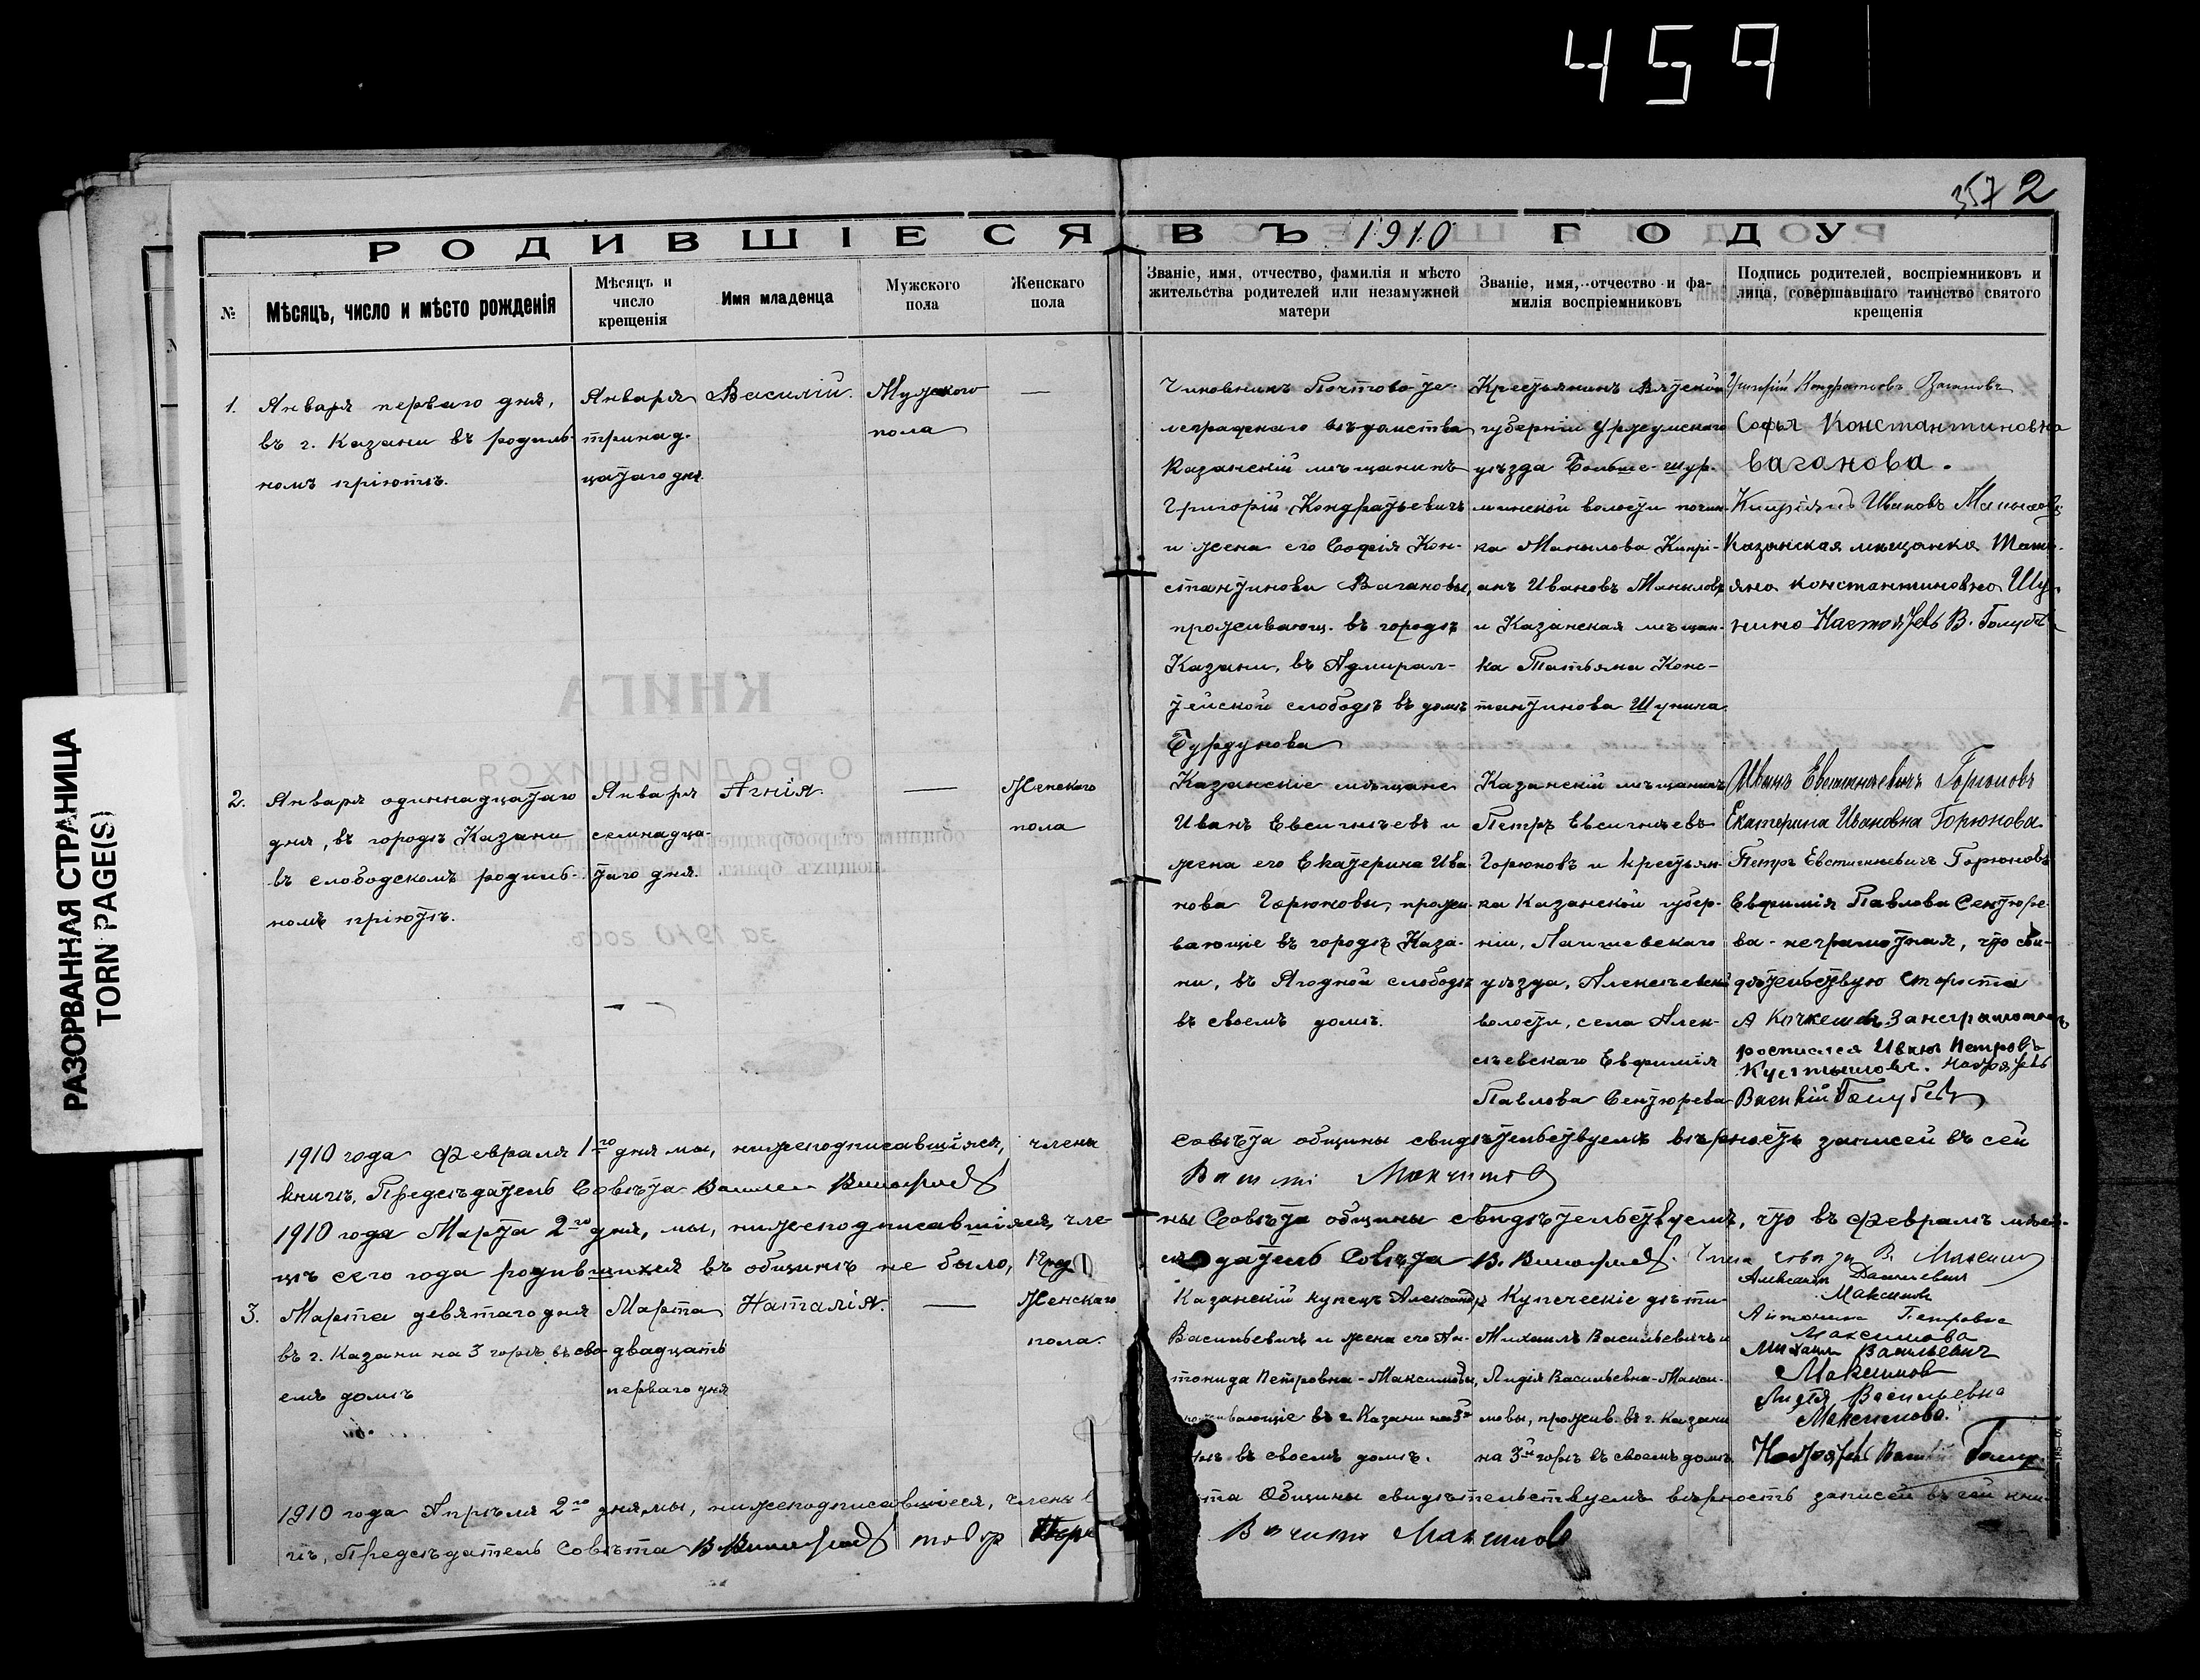 459
357 2
РОДИВШІЕСЯ ВЪ 1910 ГОДУ
№
Мѣсяцъ, число и мѣсто рожденія
Мѣсяцъ и
число
крещенія
Имя младенца
Мужского
пола
Женскаго
пола
Званіе, имя, отчество, фамилія и мѣсто
жительства родителей или незамужней
матери
Званіе, имя, отчество и фа-
милія воспріемниковъ
Подпись родителей, воспріемниковъ и
лица, совершавшаго таинство святого
крещенія
1.
Января перваго дня,
въ г. Казани въ родиль-
номъ пріютѣ.
Января
тринад-
цатаго дня.
Василій.
Мужского
пола
—
Чиновникъ Почтово-те-
леграфнаго вѣдомства
Казанскій мѣщанинъ
Григорій Кондратьевичъ
и жена его Софія Кон-
стантинова Вагановы,
проживающ. въ городѣ
Казани, въ Адмирал-
тейской слободѣ въ домѣ
Бурдукова
Крестьянинъ Вятской
губерніи Уржумскаго
уѣзда Больше-шур-
минской волости почин-
ка Манылова Кипрі-
анъ Ивановъ Маныловъ
и Казанская мѣщан-
ка Татьяна Конс-
тантинова Шунина
Григорій Кондратьевъ Вагановъ
Софья Константиновна
Ваганова.
Кипріянъ Ивановъ Маныловъ
Казанская мещанка Тать-
яна Константиновна Шу-
нина Настоятель В. Голубь
2.
Января одиннадцатаго
дня, въ городѣ Казани
въ слободскомъ родиль-
номъ пріютѣ.
Января
семнадца-
таго дня.
Агнія.
—
Женскаго
пола
Казанскіе мѣщане
Иванъ Евсигнѣевъ и
жена его Екатерина Ива-
нова Горюновы, прожи-
вающіе въ городѣ Каза-
ни, въ Ягодной слободѣ
въ своемъ домѣ.
Казанскій мѣщанинъ
Петръ Евсигнѣевъ
Горюновъ и крестьян-
ка Казанской губер-
ніи, Лаишевскаго
уѣзда, Алексѣевской
волости, села Алек-
сѣевскаго Евфимія
Павлова Сентюрева
Иванъ Евстигнѣевичъ Горюновъ
Екатерина Ивановна Горюнова.
Петръ Евстигнеевичъ Горюновъ
Евфимія Павлова Сентюре-
ва - неграмотная, что сви-
дѣтельствую староста
А Кочкешевъ За неграмотност
росписался Иванъ Петровъ
Настоятель
Василій Голубь
1910 года Февраля 1го дня мы, нижеподписавшіяся, члены совѣта общины свидѣтельствуемъ вѣрность записей въ сей
книгѣ, Предсѣдатель Совѣта
1910 года Марта 2го дня, мы, нижеподписавшіяся, чле-
ны Совѣта общины свидѣтельствуемъ, что въ февралѣ мѣся-
цѣ сего года родившихся въ общинѣ не было, Пред
сѣдатель Совѣта В. Члена совѣта В. Максимов
3.
Марта девятаго дня
въ г. Казани на 3 горѣ въ сво-
емъ домѣ
Марта
двадцать
перваго дня
Наталія.
—
Женскаго
пола.
Казанскій купецъ Александръ
Васильевичъ и жена его Ан-
тонида Петровна-Максимовы,
проживающіе въ г. Казани на 3й
горѣ въ своемъ домѣ.
Купеческіе дѣти
Михаилъ Васильевичъ и
Лидія Васильевна-Макси-
мовы, прожив. въ г. Казани
на 3й горѣ въ своемъ домѣ.
Максимов
Антонина Петровна
Максимова
Михаил Васильевич
Максимов
Лидія Васильевна
Максимова.
Настоятель
1910 года Апрѣля 2го дня мы, нижеподписавшіеся, члены
ѣта Общины свидѣтельствуемъ вѣрность записей въ сей кни-
гѣ, Предсѣдатель Совѣта
Максимов
КНИГА
О РОДИВШИХСЯ
за 1910 годъ.
РАЗОРВАННАЯ СТРАНИЦА
TORN PAGE(S)